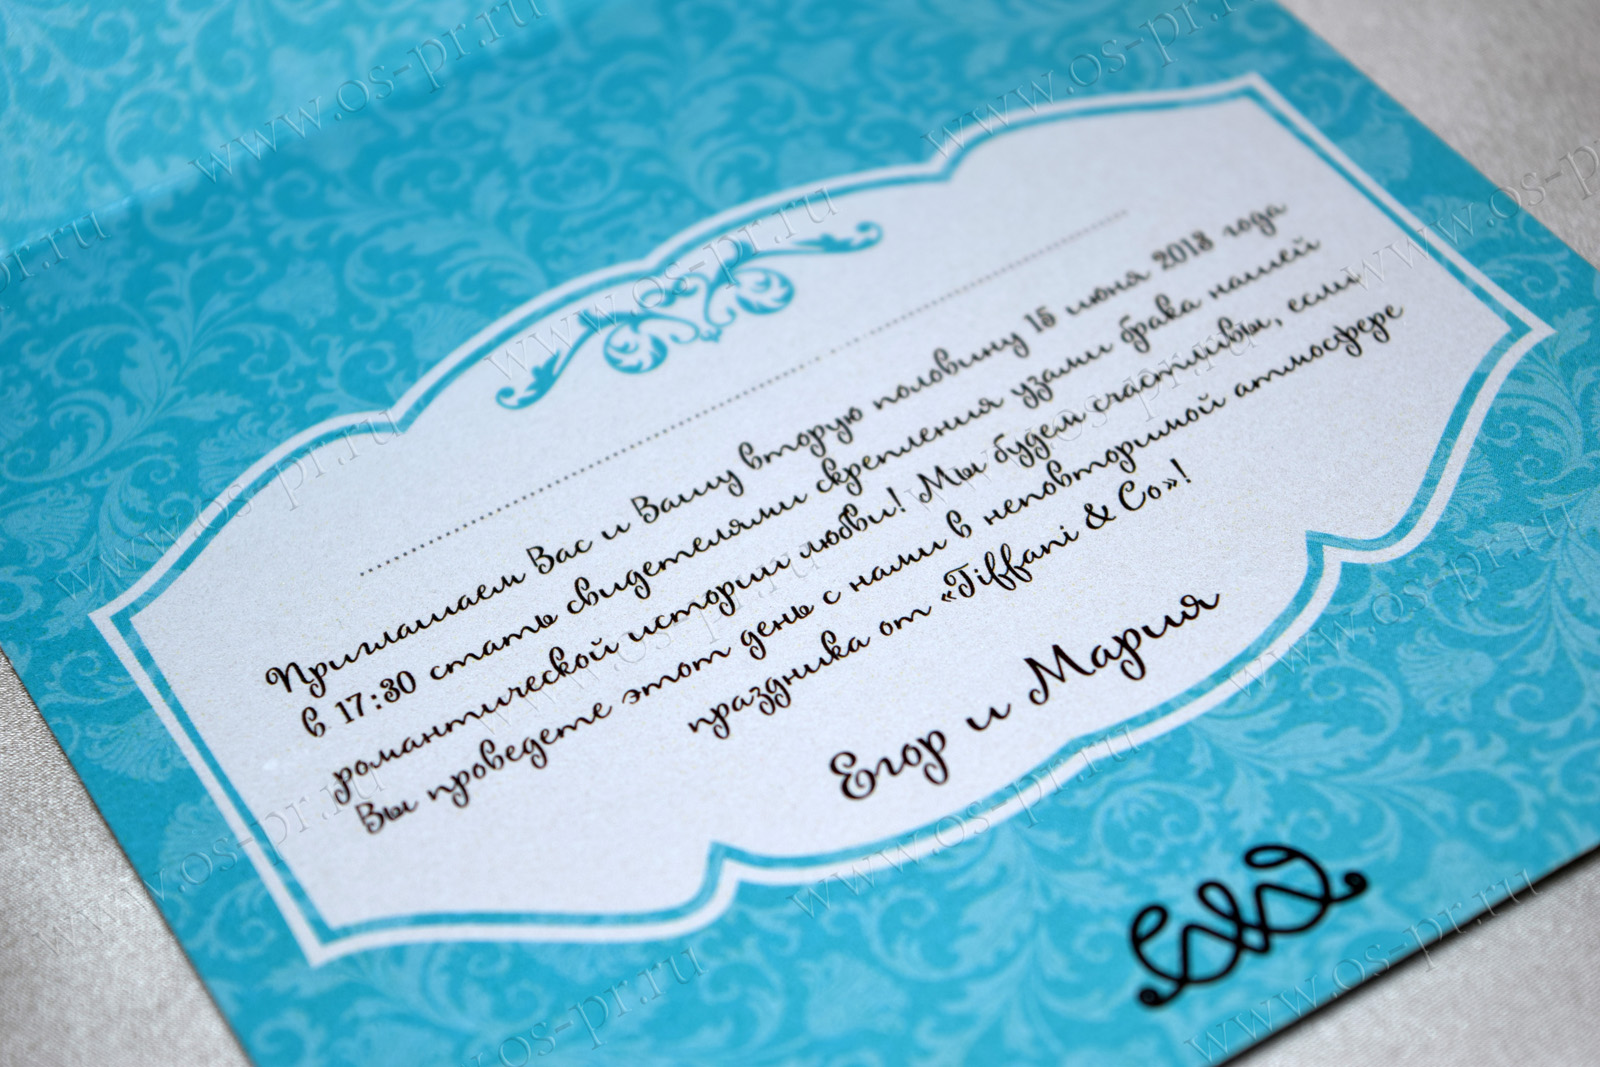 Приглашаем Вас и Вашу вторую половину 15 июня 2018 года
в 17:30 стать свидетелями скрепления узами брака нашей
романтической истории любви! Мы будем счастливы, если
Вы проведете этот день с нами в неповторимой атмосфере
праздника от «Tiffani & Co»!
Егор и Мария
www.os-pr.ru